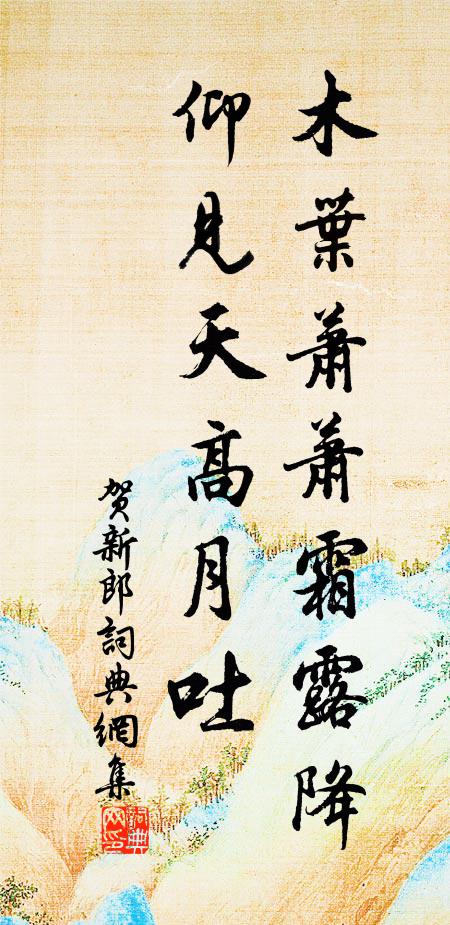 木葉蕭蕭霜露降
仰見天高月吐
贺新郎詞典網集
詞典網印